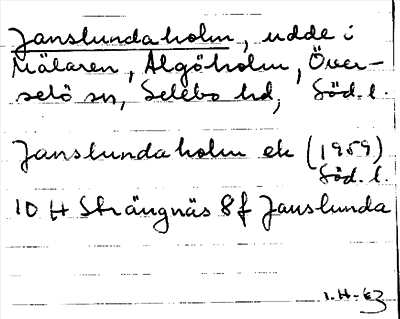 Janslundaholm, udde i
Mälaren, Algöholm, Över-
selö sn, Selebo hd, Söd. l.
Janslundaholm ek (1959)
Söd. l.
10 H Strängnäs 8f Janslunda
1.H.-63